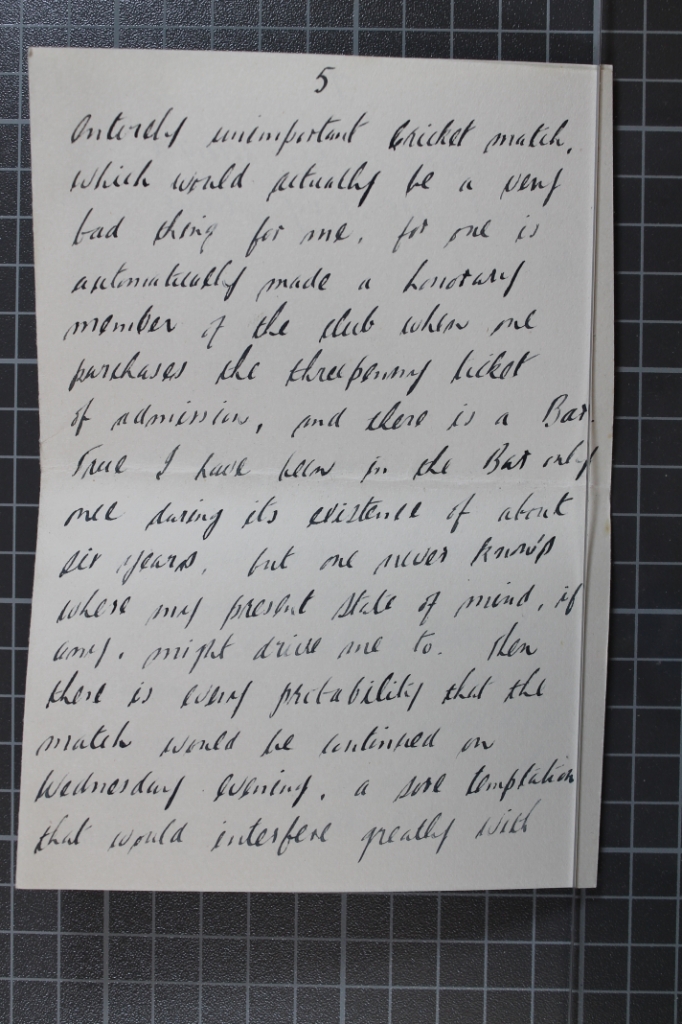 5
Entirely unimportant Cricket match,
which would actually be a very
bad thing for me, for one is
automatically made a honorary
member of the club when one
purchases the threepenny ticket
of admission, and there is a Bar.
True I have been in the Bar only
once during its existence of about
six years, but one never knows
where my present state of mind, if
any, might drive me to. Then
there is every probability that the
match would be continued on
Wednesday evening, a sore temptation
that would interfere greatly with